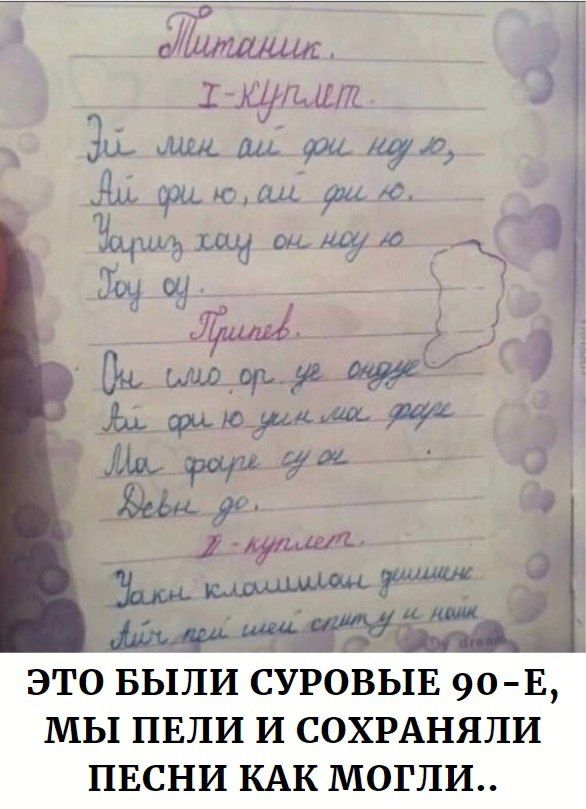 Титаник.
I-куплет.
Эй мен ай фи ноу ю,
Ай фи ю, ай фи ю.
Уариз хау он ноу ю
Гоу оу.
Припев.
Он смо ор уе ондуе
Ай фи ю уин ма фаре
Ма фаре су он
Девн до.
II-куплет.
Уакн клашишан
Айч пей шей спит у и найн
ЭТО БЫЛИ СУРОВЫЕ 90-Е,
МЫ ПЕЛИ И СОХРАНЯЛИ
ПЕСНИ КАК МОГЛИ..